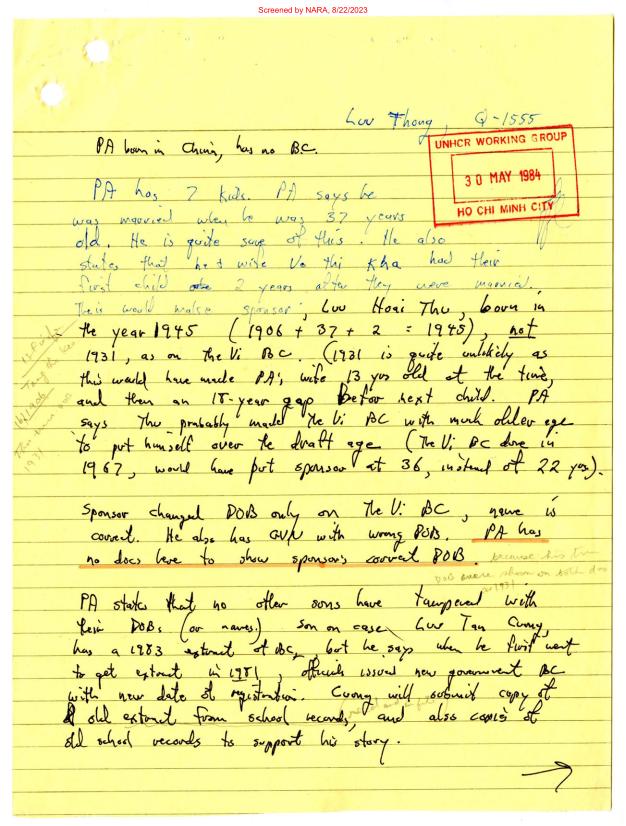 Screened by NARA, 8/22/2023
Luu Thong, Q-1555
PA born in China, has no BC.
UNHCR WORKING GROUP
30 MAY 1984
HO CHI MINH CITY
PA has 7 kids. PA says he
was married when he was 37 years
old. He is quite sure of this. He also
states that he & wife Vo Thi Kha had their
first child 2 years after they were married.
This would make sponsor, Luu Hoai Thu, born in
the year 1945 (1906 + 37 + 2 = 1945), not
1931, as on The Vi BC. (1931 is quite unlikely as
this would have made PA's wife 13 yrs old at the time,
and then an 18-year gap before next child. PA
says Thu probably made The Vi BC with much older age
to put himself over the draft age (The Vi BC done in
1967, would have put sponsor at 36, instead of 22 yrs).
Sponsor changed DOB only on The Vi BC, name is
correct. He also has GVN with wrong DOB. PA has
no docs here to show sponsor's correct DOB. because his true
DOB were shown on both
1931
PA states that no other sons have tampered with
their DOBs (or names). Son on case, Luu Tan Cuong,
has a 1983 extrait of BC, but he says when he first went
to get extrait in 1981, officials issued new government BC
with new date of registration. Cuong will submit copy of
old extrait from school records, and also copies of
old school records to support his story.
→